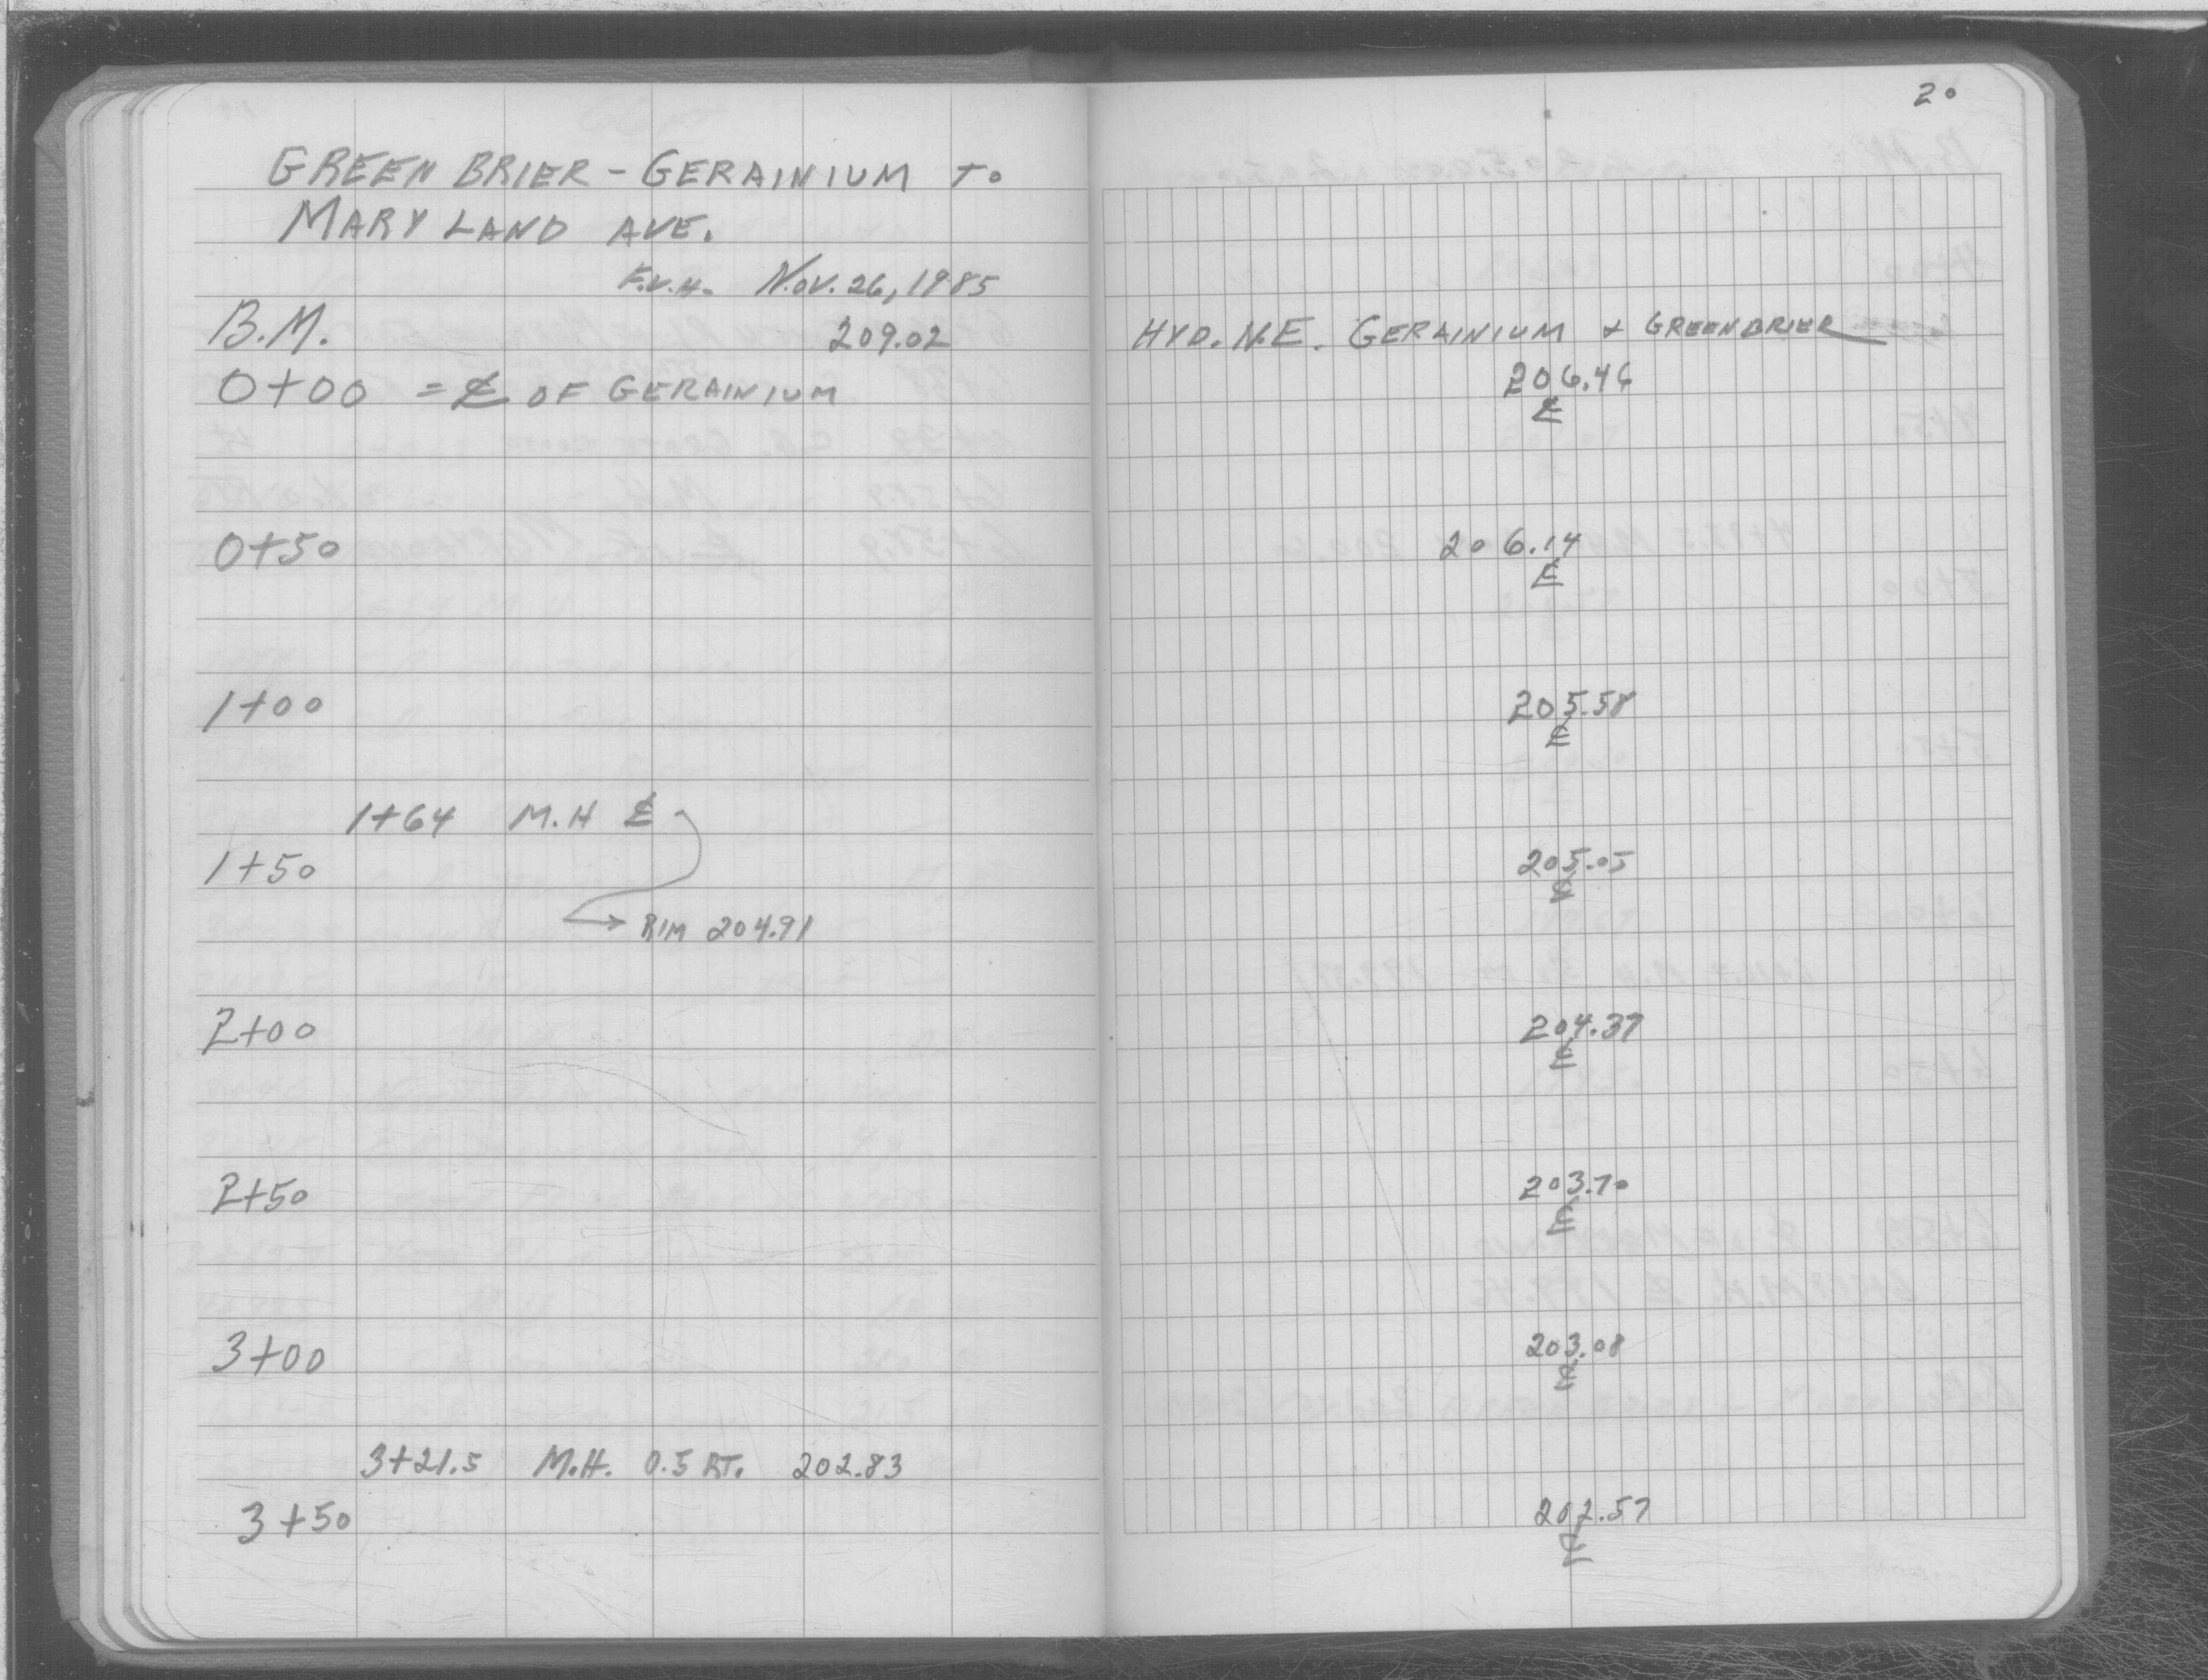 20
GREEN BRIER - GERAINIUM TO
MARYLAND AVE.
F.V.H. NOV. 26, 1985
B.M. 209.02 HYD. N.E. GERAINIUM + GREENBRIER
0+00 = ℄ OF GERAINIUM 206.46
℄
0+50 206.14
℄
1+00 205.58
℄
1+64 M.H ℄
1+50 205.05
℄
→ RIM 204.91
2+00 204.37
℄
2+50 203.70
℄
3+00 203.08
℄
3+21.5 M.H. 0.5 RT. 202.83
3+50 202.57
℄